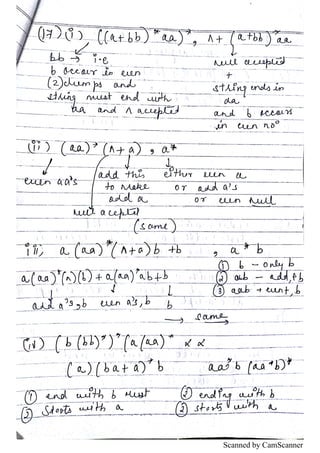 (17) (i) ((a+bb)*aa)*, Λ + (a+bb)*aa
bb → i.e
b occur in even
(2) clumps and
string must end with
aa and Λ accepted
null accepted
+
string ends in
aa
and b occurs
in even no
(ii) (aa)* (Λ+a), a*
even aa's
add this
to make
odd a
null accepted
either even a
or odd a's
or even null
(same)
iii, a (aa)* (Λ+a) b + b, a* b
a(aa)*(Λ)(b) + a(aa)*ab + b
odd a's, b even a's, b b
① b – only b
② ab – odd, + b
③ aab + even, b
→ same
(iv) (b (bb)*)* (a (aa)*
(a)(ba+a)* b aa* b (aa+b)*
① end with b must
② starts with a
① ending with b
② starts with a
Scanned by CamScanner